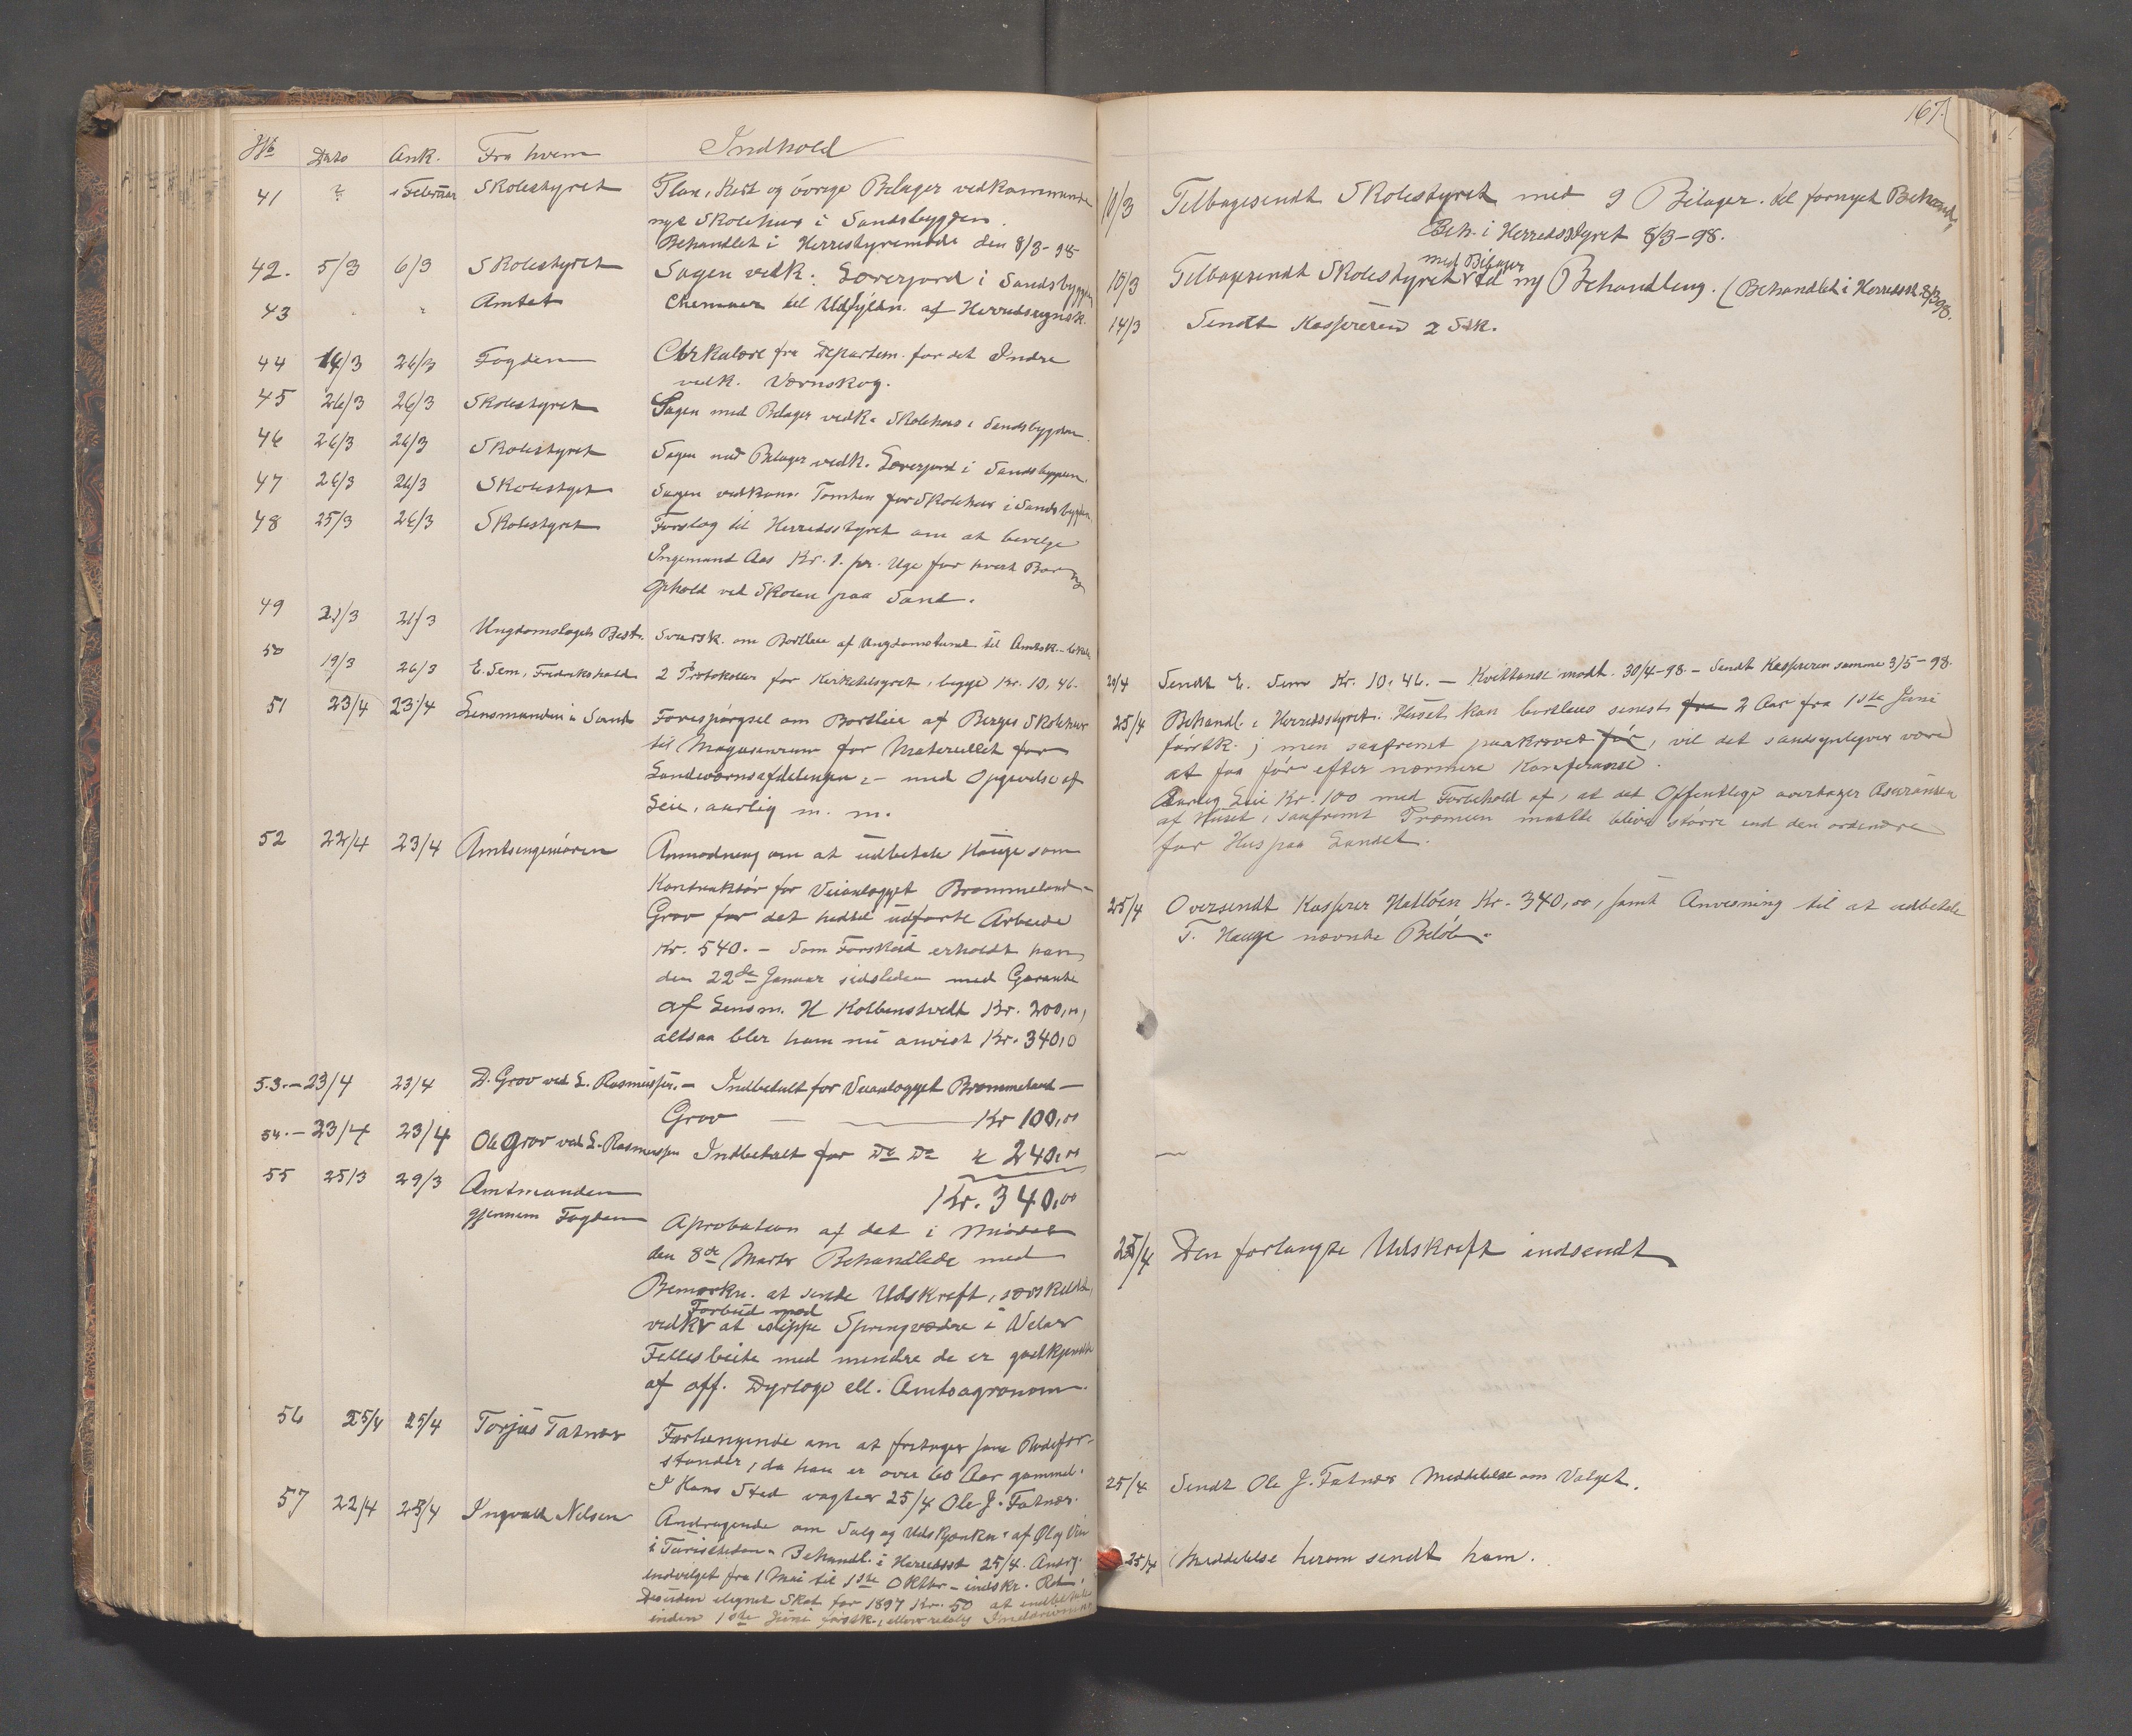 No Dato Ank. Fra hvem Indhold
41 ? 1 Februar Skolestyret Plan, Kart og övrige Bilager vedkommende
nyt Skolehus i Sandsbygden.
Behandlet i Herrestyremöde den 8/3-98
42. 5/3 6/3 Skolestyret Sagen vedk. Loverjord i Sandsbygden
43 " " Amtet Chemaer til Udfyldn. af Herredsregnsk.
44 14/3 26/3 Fogden Cirkulære fra Departem. for det Indre
vedk. Værnskog.
45 26/3 26/3 Skolestyret Sagen med Bilager vedk. Skolehus i Sandsbygden.
46 26/3 26/3 Skolestyret Sagen med Bilager vedk. Loverjord i Sandsbygden.
47 26/3 26/3 Skolestyret Sagen vedkom. Tomten for Skolehus i Sandsbygden
48 25/3 26/3 Skolestyret Forslag til Herredsstyret om at bevilge
Ingemund Aas Kr. 1. pr. Uge for hvert Barns
Ophold ved Skolen paa Sand.
49 21/3 26/3 Ungdomslagets Best. Svarsk. om Bortleie af Ungdomstunet til Amtsk.-lokale
50 19/3 26/3 E. Sem, Fredrikshald 2 Protokoller for Kirketilsynet, begge Kr. 10,46
51 23/4 23/4 Lensmanden i Sand Forespörgsel om Bortleie af Berges Skolehus
til Magasinrum for Materiellet for
Landeværnsafdelingen, - med Opgivelse af
Leie, aarlig m. m.
52 22/4 23/4 Amtsingeniören Anmodning om at udbetale Hauge som
Kontraktör for Veianlægget Brommeland-
Grov for det hidtil udförte Arbeide
Kr. 540. - Som Forskud erholdt han
den 22de Januar sidstleden med Garanti
af Lensm. H Kolbenstvedt Kr. 200,00,
altsaa bler ham nu anvist Kr. 340,0
53.- 23/4 23/4 D. Grov ved L. Rasmussen.- Indbetalt for Veianlægget Brommeland-
Grov — Kr 100,00
54.- 23/4 23/4 Ole Grov ved L. Rasmussen Indbetalt for Do Do " 240,00
Kr. 340,00
55 25/3 29/3 Amtmanden
gjennem Fogden Aprobation af det i Mödet
den 8de Marts Behandlede med
Bemærkn. at sende Udskrift, særskilt,
Forbud mod
vedk. at slippe Springvædre i Velar
Fellesbeite med mindre de er godkjendte
af off. Dyrlæge ell. Amtsagronom.
56 25/4 25/4 Torjus Fatnes Forlangende om at fritages som Rodefor-
stander, da han er over 60 Aar gammel.
I Hans Sted vagtes 25/4 Ole J. Fatnes.
57 22/4 23/4 Ingvald Nilsen Andragende om Salg og Udskjænkn. af Öl og Vin
i Turisttiden. Behandl. i Herredsst 25/4. Andrg.
indvilget fra 1 Mai til 1ste Oktbr - indskr.
Desuden elignet Skat for 1897 Kr. 50 at indbetales
inden 1ste Juni förstk.,
167.
10/3 Tilbagesendt Skolestyret med 9 Bilager. til fornyet Behandl.
Beh. i Herredsstyret 8/3-98.
med Bilager
10/3 Tilbagesendt Skolestyret til ny Behandling. (Behandlet i Herredsst. 8/3 98.
14/3 Sendt Kassereren 2 Stk.
29/4 Sendt E. Sem Kr. 10,46. - Kvittanse modt. 30/4-98. - Sendt Kassereren samme 3/5-98.
25/4 Behandl. i Herredsstyret. Huset kan bortleies senest fra 2 Aar fra 1ste Juni
förstk.; men saafremt paakræves för, vil det sandsynligvis være
at faa för efter nærmere Konferanse.
Aarlig Leie Kr. 100 med Forbehold af, at det Offentlige overtager Asuransen
af Huset, saafremt Præmien maatte blive större end den ordinære
for Hus paa Landet.
25/4 Oversendt Kasserer Hatlöen Kr. 340,00, samt Anvisning til at udbetale
T. Hauge nævnte Belöb.
25/4 Den forlangte Udskrift indsendt
25/4 Sendt Ole J. Fatnes Meddelelse om Valget.
25/4 Meddelelse herom sendt ham.